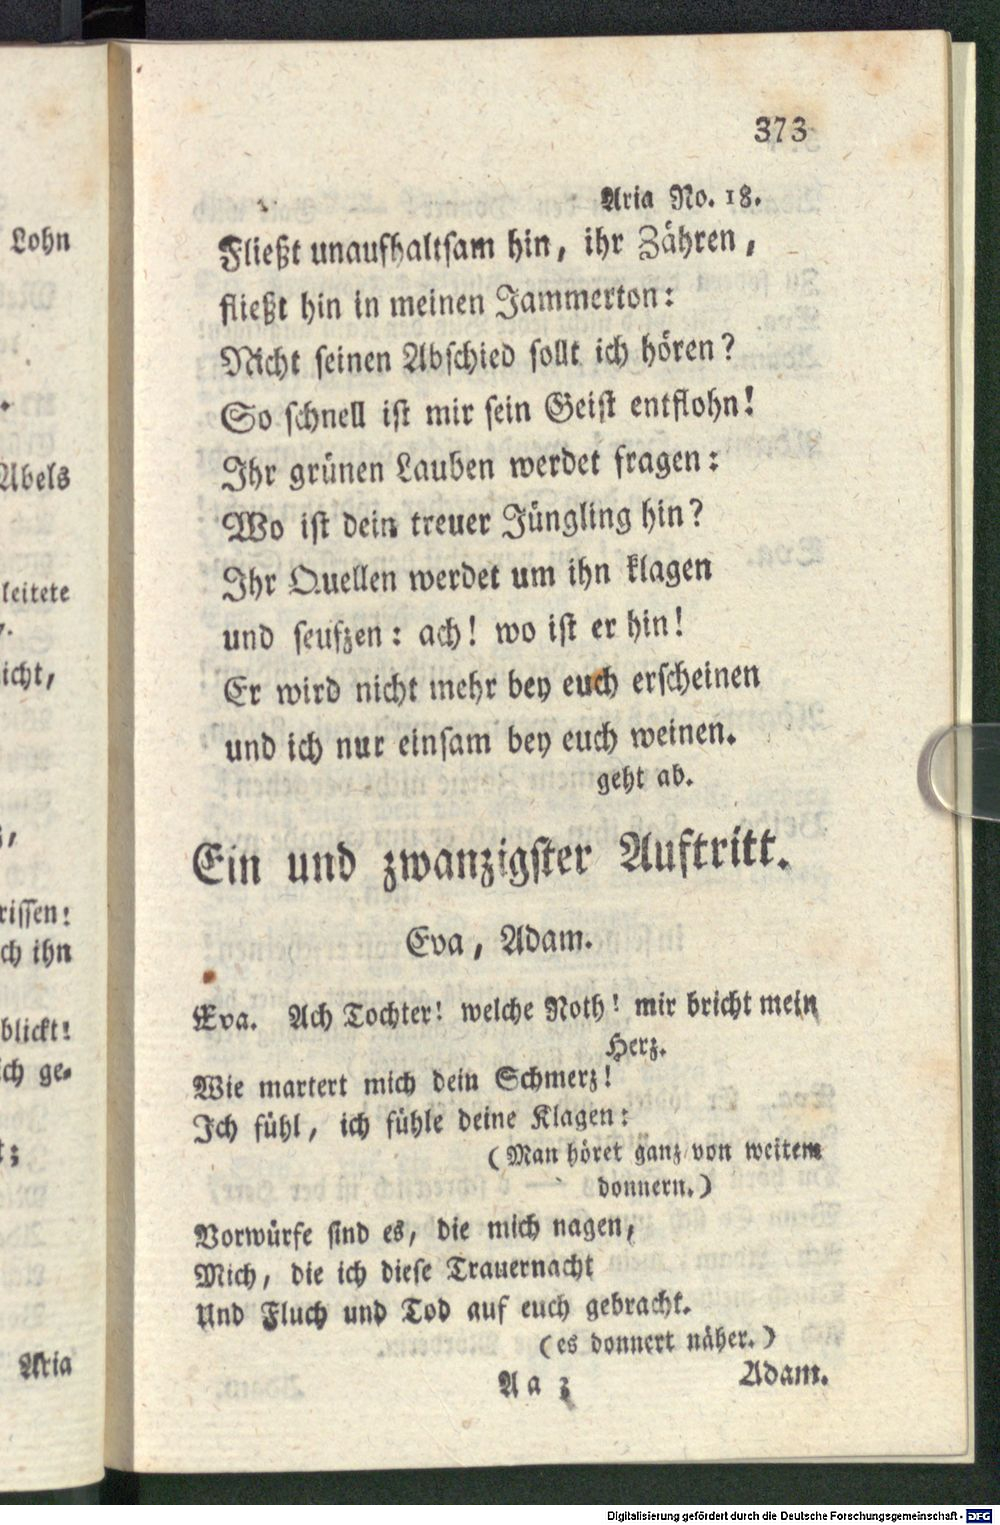 373
Aria No. 18.
Fließt unaufhaltsam hin, ihr Zähren,
fließt hin in meinen Jammerton:
Nicht seinen Abschied sollt ich hören?
So schnell ist mir sein Geist entflohn!
Ihr grünen Lauben werdet fragen:
Wo ist dein treuer Jüngling hin?
Ihr Quellen werdet um ihn klagen
und seufzen: ach! wo ist er hin!
Er wird nicht mehr bey euch erscheinen
und ich nur einsam bey euch weinen.
geht ab.
Ein und zwanzigster Auftritt.
Eva, Adam.
Eva. Ach Tochter! welche Noth! mir bricht mein
Herz.
Wie martert mich dein Schmerz!
Ich fühl, ich fühle deine Klagen:
(Man höret ganz von weitem
donnern.)
Vorwürfe sind es, die mich nagen,
Mich, die ich diese Trauernacht
Und Fluch und Tod auf euch gebracht.
(es donnert näher.)
A a 3
Adam.
Lohn
Abels
leitete
icht,
rissen:
ch ihn
blickt!
ich ge-
Aria
Digitalisierung gefördert durch die Deutsche Forschungsgemeinschaft - DFG